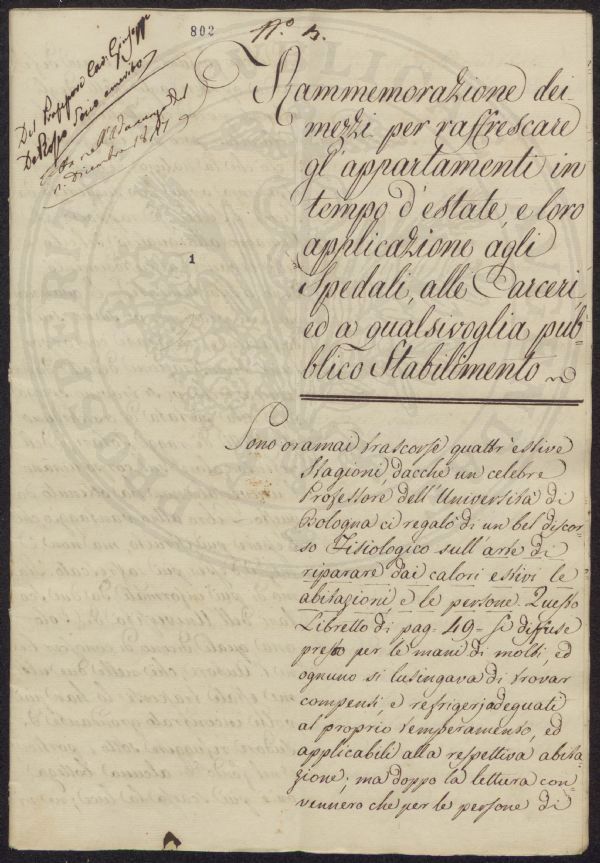 802
N.º 5.
Del Professore Cav. Giuseppe
Del Rosso Socio emerito
Letta nell'Adunanza del
dicembre 1817
1
Rammemorazione dei
mezzi per raffrescare
gl'appartamenti in
tempo d'estate, e loro
applicazione agli
Spedali, alle Carceri
ed a qualsivoglia pub-
blico Stabilimento
Sono oramai trascorse quattr'estive
Stagioni, dacchè un celebre
Professore dell'Università di
Bologna ci regalò di un bel discor-
so Fisiologico sull'arte di
riparare dai calori estivi le
abitazioni, e le persone. Questo
Libretto di pag. 49 = si diffuse
presto per le mani di molti, ed
ognuno si lusingava di trovar
compensi, e refrigerj adeguati
al proprio temperamento, ed
applicabili alla respettiva abita-
zione; ma doppo la lettura con-
vennero che per le persone di